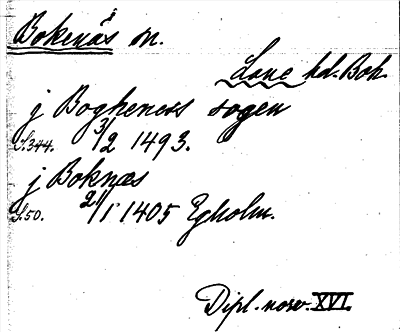 Bokenäs sn.
Lane hd. Boh.
j Bogheness sogen
S. 344. 3/2 1493.
j Boknæs
S. 50. 21/1 1405 Egholm.
Dipl. norv. XVI